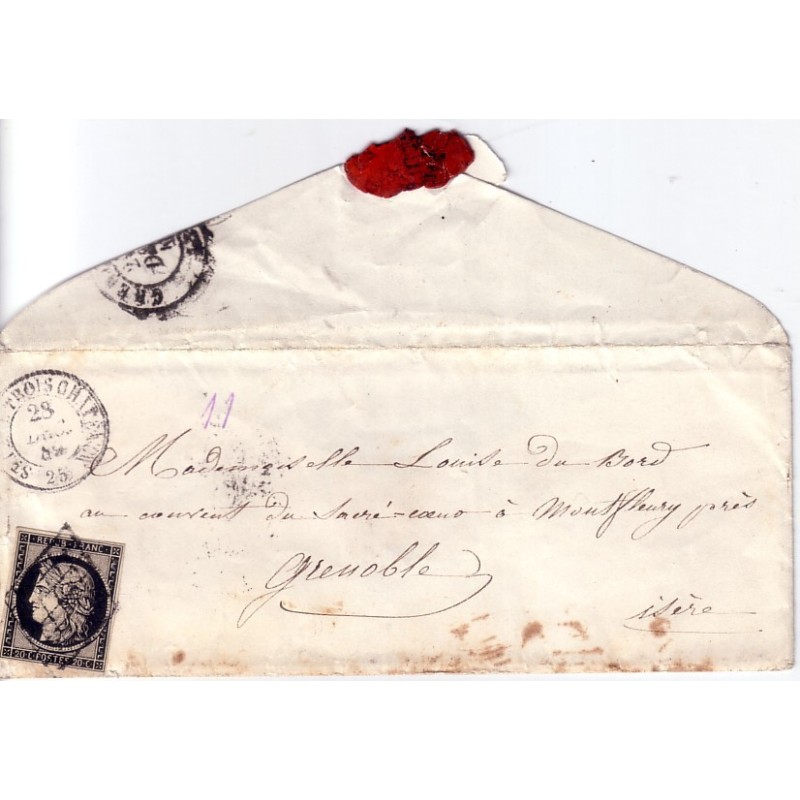 GRE
TROIS CHATEAUX
28
25
11
Mademoiselle Louise du Bord
au couvent du Sacré-cœur à Montfleury près
Grenoble
isère
REPUB. FRANC.
20 C. POSTES 20 C.